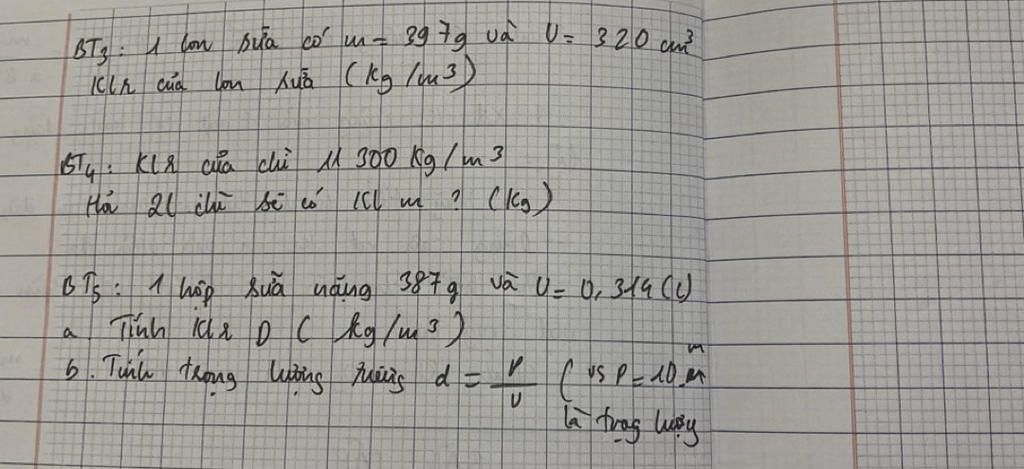 BT3: 1 lon sữa có m = 397g và V = 320 cm³
KLR của lon sữa (kg/m3)
BT4: KLR của chì 11 300 kg/m3
Hỏi 2l chì sẽ có KL m ? (kg)
BT5: 1 hộp sữa nặng 387g và V = 0,314 (l)
a Tính KLR D ( kg/m3)
b. Tính trọng lượng riêng d = P/V ( vs P = 10 m
là trọng lượng